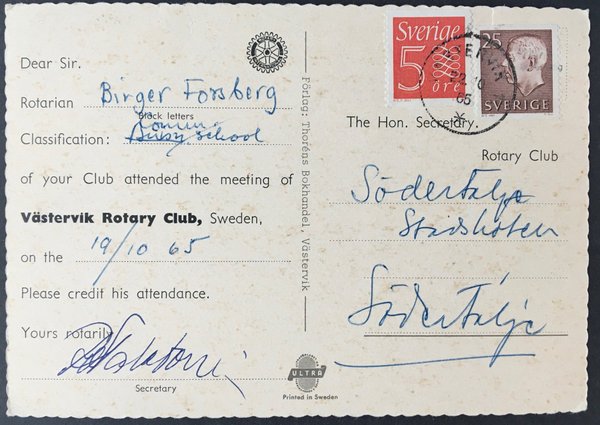 Dear Sir.
Rotarian Birger Forsberg
block letters
Classification: school
of your Club attended the meeting of
Västervik Rotary Club, Sweden,
on the 19/10 65
Please credit his attendance.
Yours rotarily
Secretary
Förlag: Thoréns Bokhandel, Västervik
ULTRA
Printed in Sweden
Sverige
5
öre
25
SVERIGE
65
The Hon. Secretary.
Rotary Club
Södertälje
Stadshotell
Södertälje